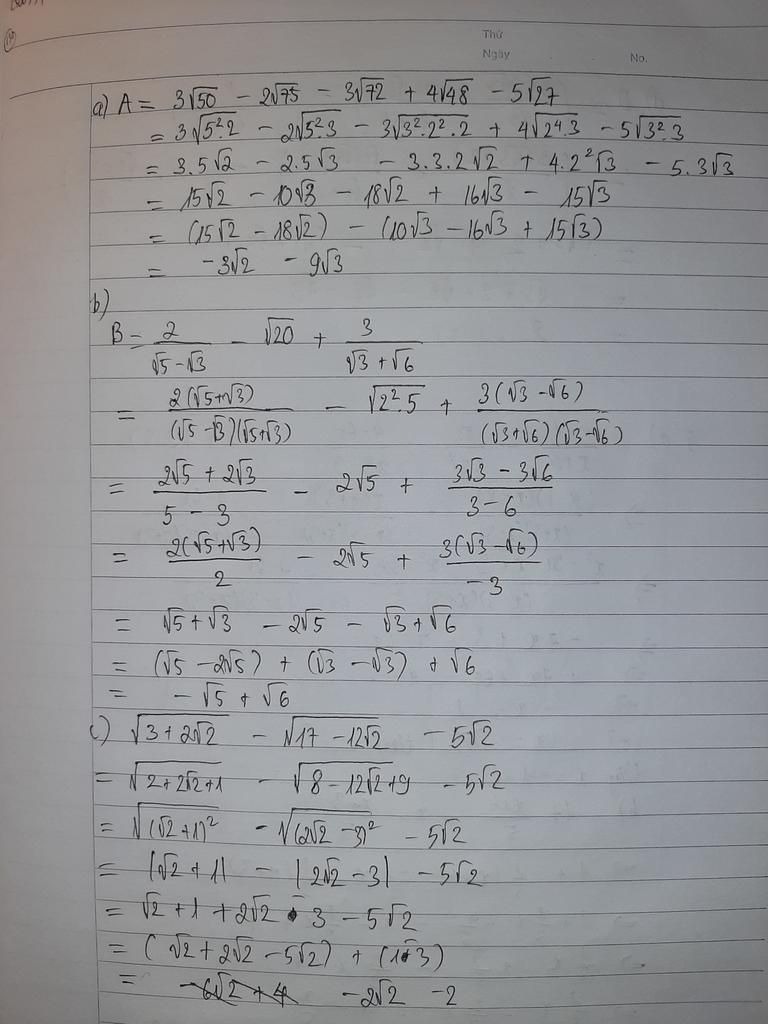 Thứ
Ngày No.
a) A = 3√50 - 2√75 - 3√72 + 4√48 - 5√27
= 3√(5².2) - 2√(5².3) - 3√(3².2².2) + 4√(2⁴.3) - 5√(3².3)
= 3.5√2 - 2.5√3 - 3.3.2√2 + 4.2²√3 - 5.3√3
= 15√2 - 10√3 - 18√2 + 16√3 - 15√3
= (15√2 - 18√2) - (10√3 - 16√3 + 15√3)
= -3√2 - 9√3
b)
B = 2/(√5-√3) - √20 + 3/(√3+√6)
= 2(√5+√3)/((√5-√3)(√5+√3)) - √(2².5) + 3(√3-√6)/((√3+√6)(√3-√6))
= (2√5+2√3)/(5-3) - 2√5 + (3√3-3√6)/(3-6)
= 2(√5+√3)/2 - 2√5 + 3(√3-√6)/(-3)
= √5+√3 - 2√5 - √3+√6
= (√5-2√5) + (√3-√3) + √6
= -√5 + √6
c) √(3+2√2) - √(17-12√2) - 5√2
= √(2+2√2+1) - √(8-12√2+9) - 5√2
= √((√2+1)²) - √((2√2-3)²) - 5√2
= |√2+1| - |2√2-3| - 5√2
= √2+1+2√2-3-5√2
= (√2+2√2-5√2) + (1-3)
= -6√2+4 -2√2 -2